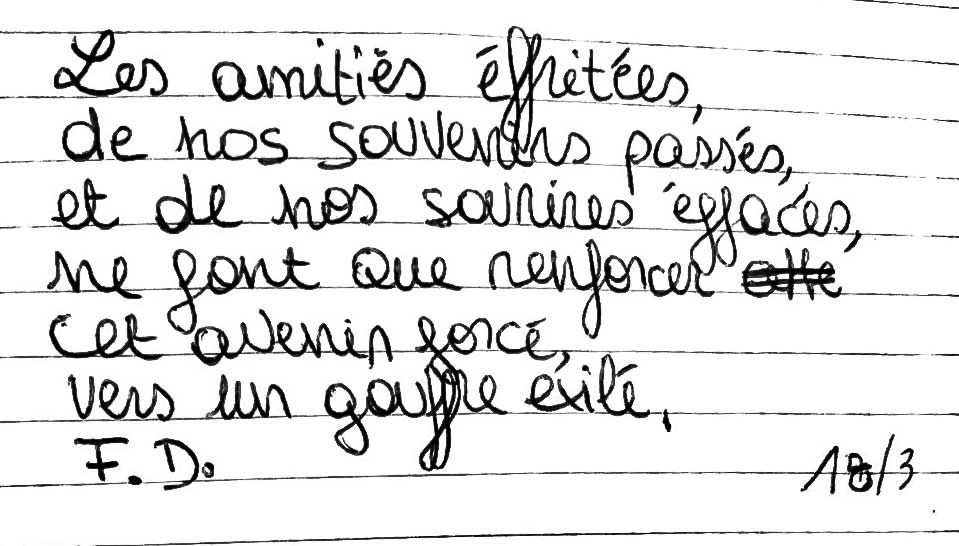 Les amitiés éffritées,
de nos souvenirs passés,
et de nos sourires éffacés,
ne font que renforcer
cet avenir forcé,
vers un gouffre éxilé.
F.D.
18/3